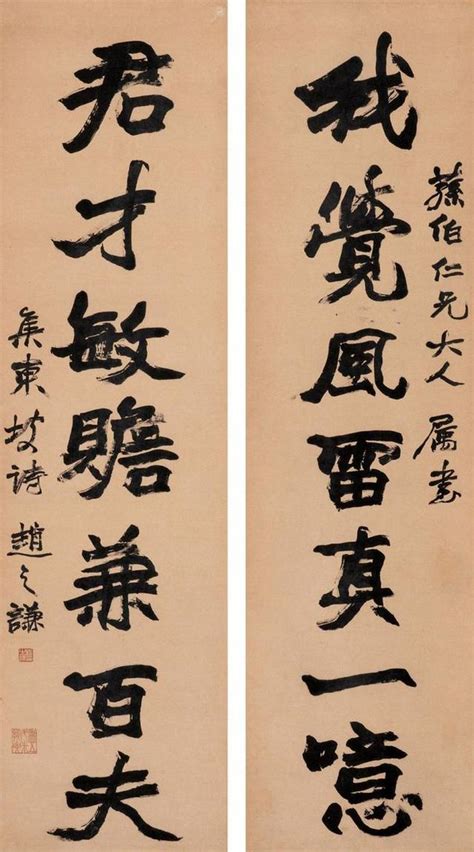 我覺風雷真一噫
蓀伯仁兄大人 属書
君才敏贍兼百夫
集東坡詩 趙之謙